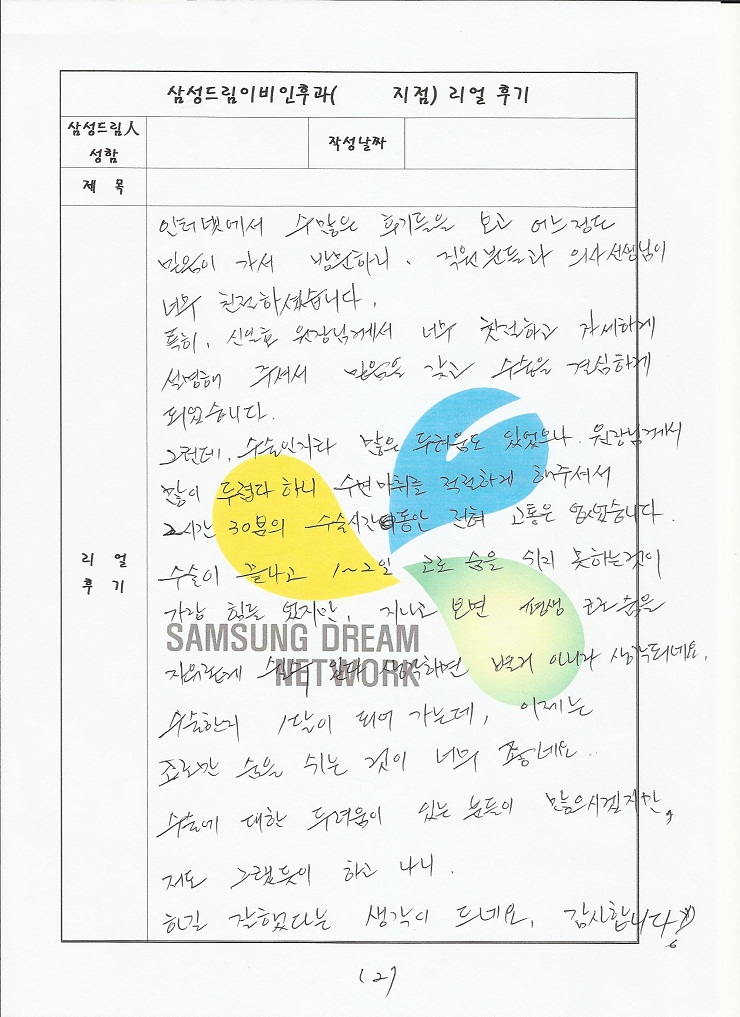 삼성드림이비인후과(      지점) 리얼 후기
삼성드림人
성함
작성날짜
제 목
리 얼
후 기
인터넷에서 수많은 후기들을 보고 어느정도
믿음이 가서 방문하니, 직원분들과 의사선생님이
너무 친절하셨습니다.
특히, 신일호 원장님께서 너무 친절하고 자세하게
설명해 주셔서 믿음을 갖고 수술을 결심하게
되었습니다.
그런데, 수술인지라 많은 두려움도 있었으나 원장님께서
많이 두렵다 하니 수면마취를 적절하게 해주셔서
2시간 30분의 수술시간동안 전혀 고통은 없었습니다.
수술이 끝나고 1~2일 코로 숨을 쉬지 못하는것이
가장 힘들었지만, 지나고 보면 평생 코로 숨을
자유롭게 쉴수 있다 생각하면 별거 아니라 생각되네요.
수술한지 1달이 되어 가는데, 이제는
코로만 숨을 쉬는 것이 너무 좋네요..
수술에 대한 두려움이 있는 분들이 많으시겠지만,
저도 그랬듯이 하고 나니.
하길 잘했다는 생각이 드네요, 감사합니다!!
SAMSUNG DREAM
NETWORK
(2)